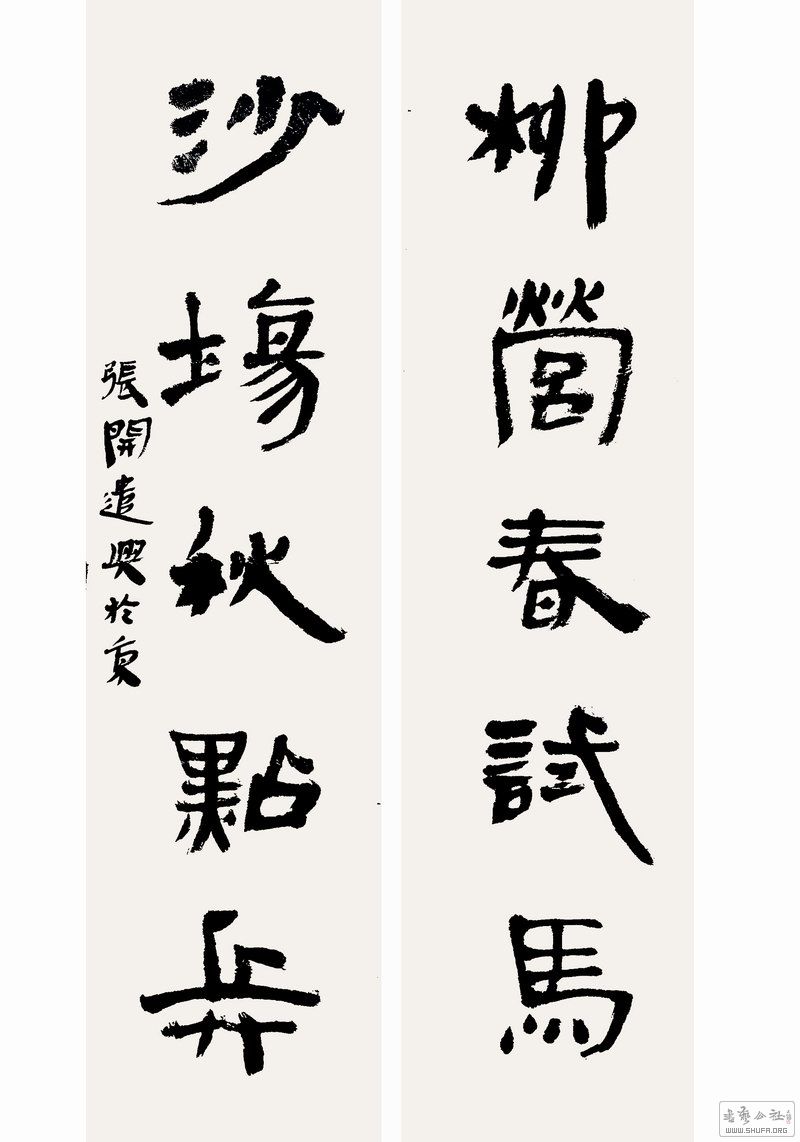 柳營春試馬
沙場秋點兵
張開遣興於京
書藝公社
WWW.SHUFA.ORG